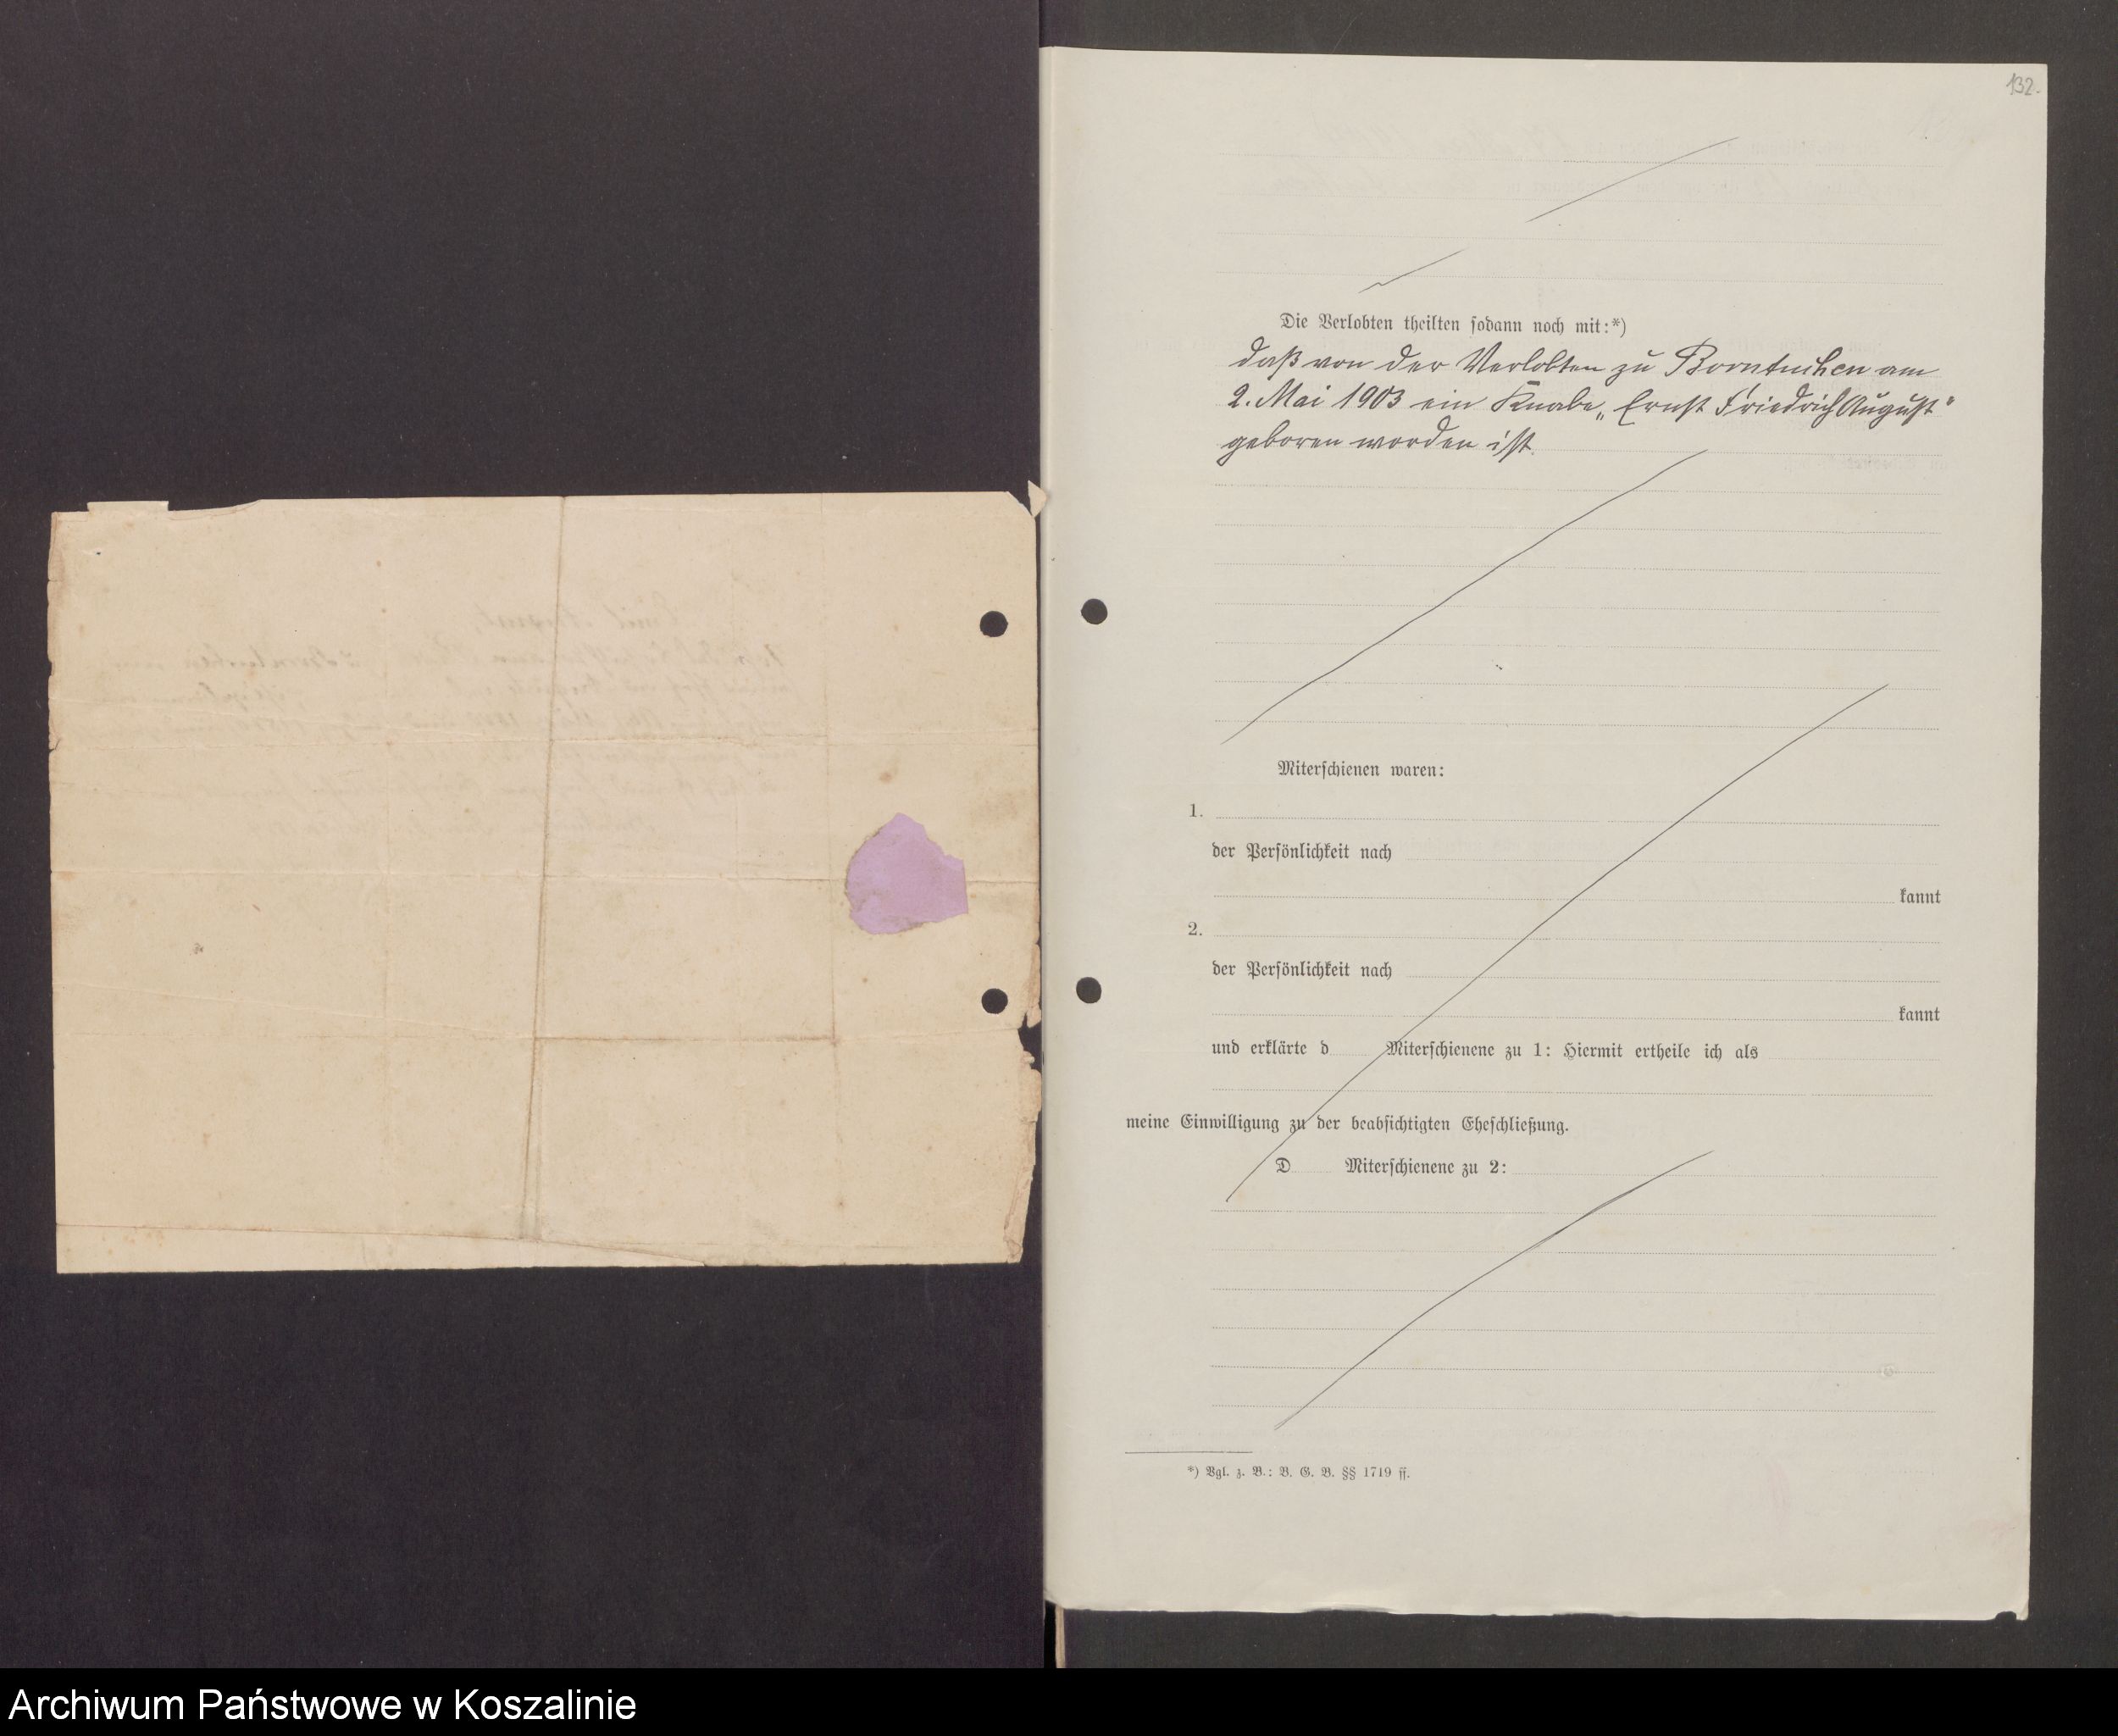 132.
Die Verlobten theilten sodann noch mit:*)
daß von der Verlobten zu Borntuchen am
2. Mai 1903 ein Knabe „Ernst Friedrich August"
geboren worden ist.
Miterschienen waren:
1.
der Persönlichkeit nach
kannt
2.
der Persönlichkeit nach
kannt
und erklärte d Miterschienene zu 1: Hiermit ertheile ich als
meine Einwilligung zu der beabsichtigten Eheschließung.
D Miterschienene zu 2:
*) Vgl. z. B.: B. G. B. §§ 1719 ff.
Archiwum Państwowe w Koszalinie